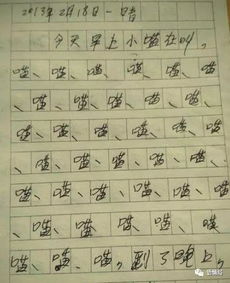 2013年2月18日一晴
今天早上小喵在叫，
喵、喵、喵、喵、喵、喵
、喵、喵、喵、喵、喵、
喵、喵、喵、喵、喵、喵
、喵、喵、喵、喵、喵、
喵、喵、喵、喵、喵、喵
、喵、喵、喵、喵、喵
喵、喵、喵，到了晚上，